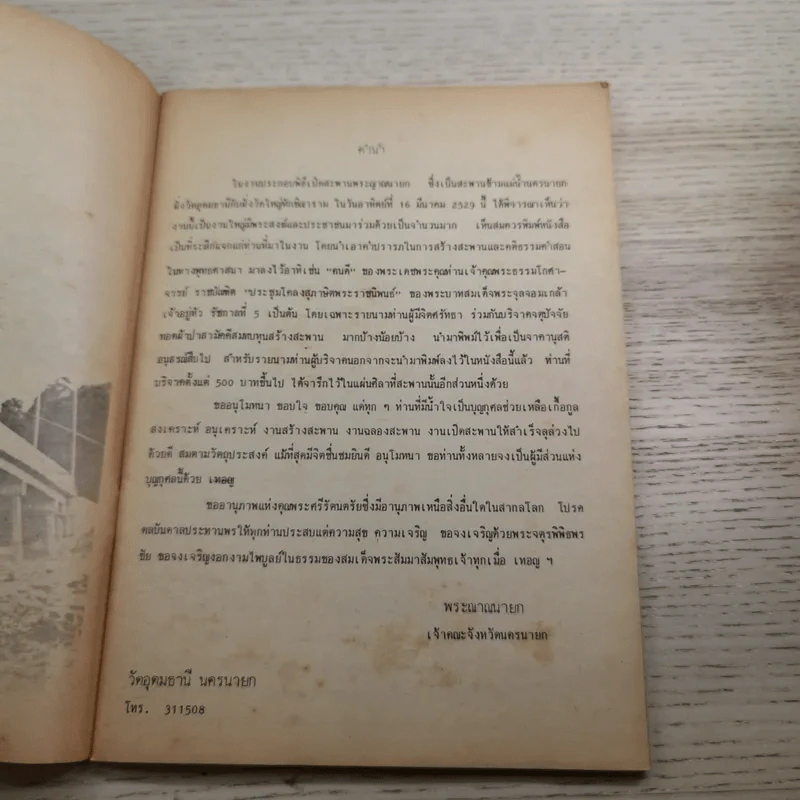 คำนำ
ในงานประกอบพิธีเปิดสะพานพระญาณนายก ซึ่งเป็นสะพานข้ามแม่น้ำนครนายก
ฝั่งวัดอุดมธานีกับฝั่งวัดใหญ่ทักขิณาราม ในวันอาทิตย์ที่ 16 มีนาคม 2529 นี้ ได้พิจารณาเห็นว่า
งานนี้เป็นงานใหญ่มีพระสงฆ์และประชาชนมาร่วมด้วยเป็นจำนวนมาก เห็นสมควรพิมพ์หนังสือ
เป็นที่ระลึกแจกแก่ท่านที่มาในงาน โดยนำเอาคำปรารภในการสร้างสะพานและคติธรรมคำสอน
ในทางพุทธศาสนา มาลงไว้อาทิเช่น "คนดี" ของพระเดชพระคุณท่านเจ้าคุณพระธรรมโกศา-
จารย์ ราชบัณฑิต "ประชุมโคลงสุภาษิตพระราชนิพนธ์" ของพระบาทสมเด็จพระจุลจอมเกล้า
เจ้าอยู่หัว รัชกาลที่ 5 เป็นต้น โดยเฉพาะรายนามท่านผู้มีจิตศรัทธา ร่วมกันบริจาคจตุปัจจัย
ทอดผ้าป่าสามัคคีสมทบทุนสร้างสะพาน มากบ้างน้อยบ้าง นำมาพิมพ์ไว้เพื่อเป็นจาคานุสติ
อนุสรณ์สืบไป สำหรับรายนามท่านผู้บริจาคนอกจากจะนำมาพิมพ์ลงไว้ในหนังสือนี้แล้ว ท่านที่
บริจาคตั้งแต่ 500 บาทขึ้นไป ได้จารึกไว้ในแผ่นศิลาที่สะพานนั้นอีกส่วนหนึ่งด้วย
ขออนุโมทนา ขอบใจ ขอบคุณ แด่ทุก ๆ ท่านที่มีน้ำใจเป็นบุญกุศลช่วยเหลือเกื้อกูล
สงเคราะห์ อนุเคราะห์ งานสร้างสะพาน งานฉลองสะพาน งานเปิดสะพานให้สำเร็จลุล่วงไป
ด้วยดี สมตามวัตถุประสงค์ แม้ที่สุดมีจิตชื่นชมยินดี อนุโมทนา ขอท่านทั้งหลายจงเป็นผู้มีส่วนแห่ง
บุญกุศลนี้ด้วย เทอญ
ขออานุภาพแห่งคุณพระศรีรัตนตรัยซึ่งมีอานุภาพเหนือสิ่งอื่นใดในสากลโลก โปรด
ดลบันดาลประทานพรให้ทุกท่านประสบแต่ความสุข ความเจริญ ขอจงเจริญด้วยพระจตุรพิธพร
ชัย ขอจงเจริญงอกงามไพบูลย์ในธรรมของสมเด็จพระสัมมาสัมพุทธเจ้าทุกเมื่อ เทอญ ฯ
พระญาณนายก
เจ้าคณะจังหวัดนครนายก
วัดอุดมธานี นครนายก
โทร. 311508